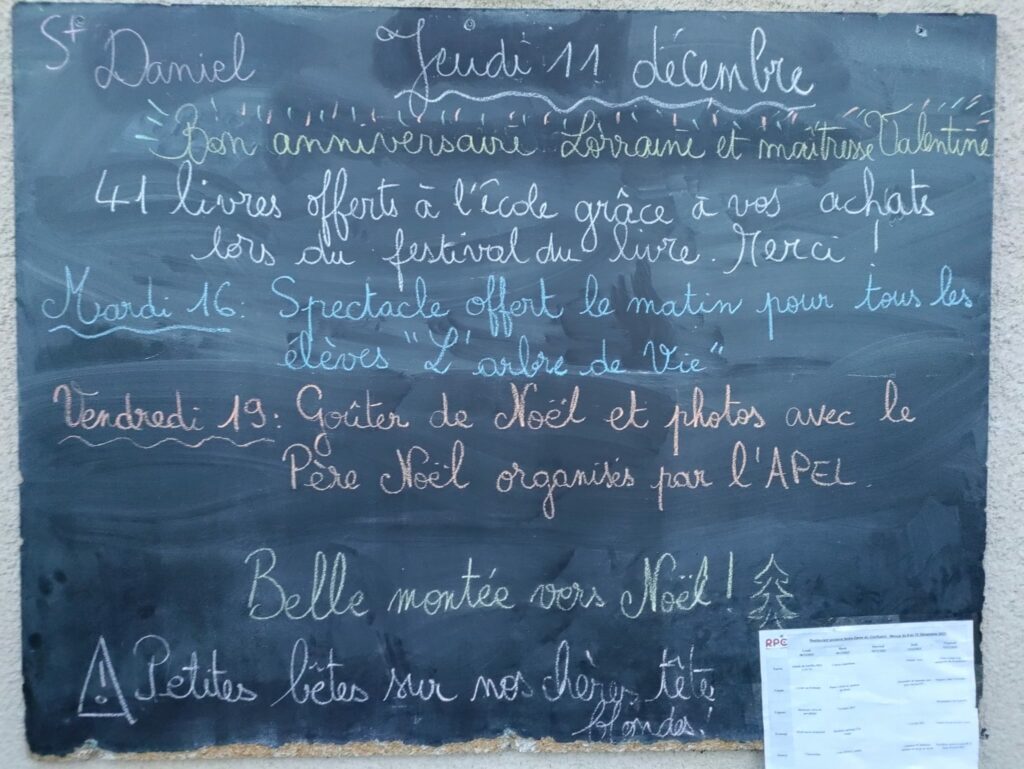 St Daniel
Jeudi 11 décembre
Bon anniversaire Lorraine et maîtresse Valentine
41 livres offerts à l'École grâce à vos achats
lors du festival du livre. Merci !
Mardi 16 : Spectacle offert le matin pour tous les
élèves "L'arbre de Vie"
Vendredi 19 : Goûter de Noël et photos avec le
Père Noël organisés par l'APEL
Belle montée vers Noël !
! Petites bêtes sur nos chères tête
blondes !
RPC